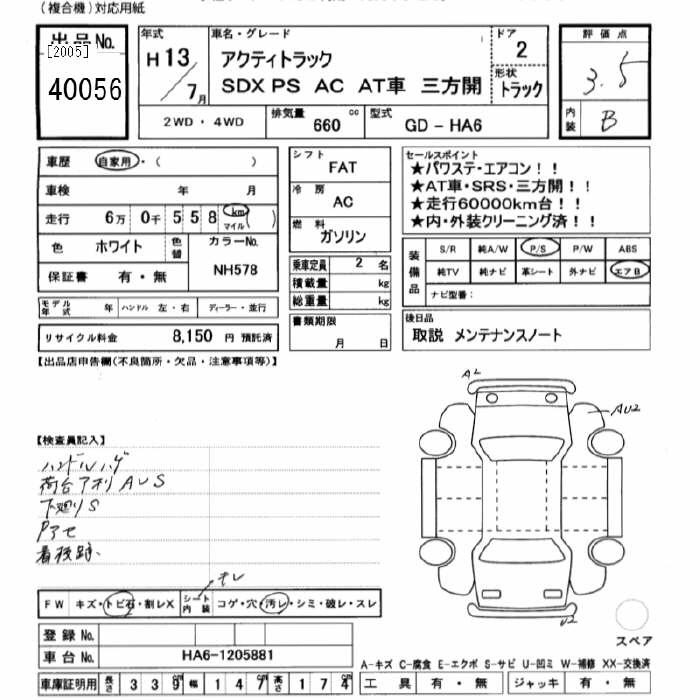 (複合機)対応用紙
出品No.
[2005]
40056
年式
H13/7月
車名・グレード
アクティトラック
SDX PS AC AT車 三方開
ドア
2
形状
トラック
2WD・4WD
排気量
660 cc
型式
GD-HA6
評価点
3.5
内装
B
車歴 自家用・( )
車検 年 月
走行 6万 0千 5 5 8 km マイル ( )
色 ホワイト 色替 カラーNo. NH578
保証書 有・無
モデル年式 年 ハンドル 左・右 ディーラー・並行
リサイクル料金 8,150 円 預託済
シフト
FAT
冷房
AC
燃料
ガソリン
乗車定員 2 名
積載量 kg
総重量 kg
書類期限
月 日
セールスポイント
★パワステ・エアコン!!
★AT車・SRS・三方開!!
★走行60000km台!!
★内・外装クリーニング済!!
装備品
S/R 純A/W P/S P/W ABS
純TV 純ナビ 革シート 外ナビ エアB
ナビ型番:
後日品
取説 メンテナンスノート
【出品店申告欄(不良箇所・欠品・注意事項等)】
【検査員記入】
ハンドルハゲ
荷台アオリAUS
下廻りS
Pアセ
看板跡
FW キズ・トビ石・割レX シート内装 コゲ・穴・汚レ・シミ・破レ・スレ
登録No.
車台No. HA6-1205881
車庫証明用 長さ 339cm 幅 147cm 高さ 174cm
AU2
U2
スペア
A-キズ C-腐食 E-エクボ S-サビ U-凹ミ W-補修 XX-交換済
工具 有・無 ジャッキ 有・無